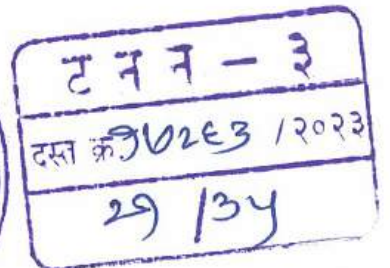 ट न न - ३
दस्त क्र १७२६३ /२०२३
२१ /३५